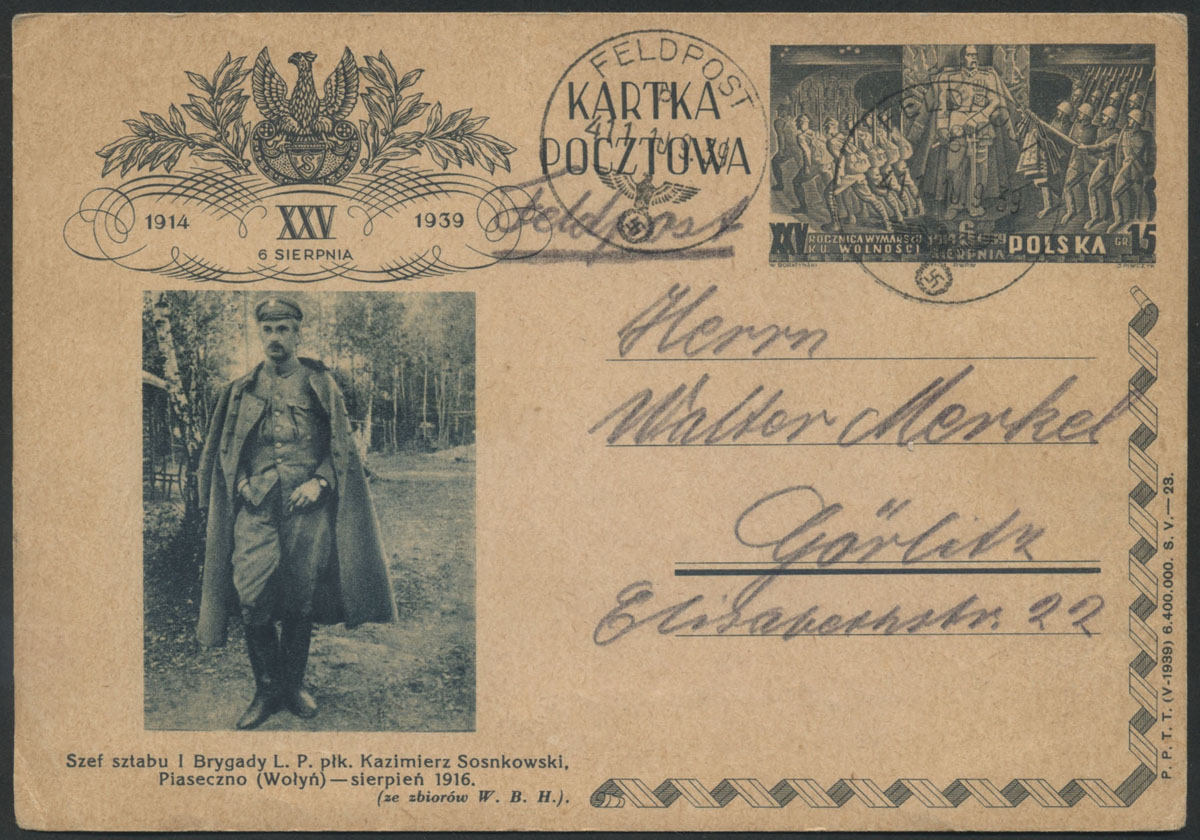 FELDPOST
KARTKA
POCZTOWA
Feldpost
1914 XXV 1939
6 SIERPNIA
XXV ROCZNICA WYMARSZU 1914 6 1939
KU WOLNOŚCI SIERPNIA POLSKA GR. 15
Herrn
Walter Merkel
Görlitz
Elisabethstr. 22
Szef sztabu I Brygady L. P. płk. Kazimierz Sosnkowski,
Piaseczno (Wołyń) — sierpień 1916.
(ze zbiorów W. B. H.).
P. P. T. T. (V-1939) 6.400.000. S. V. — 23.